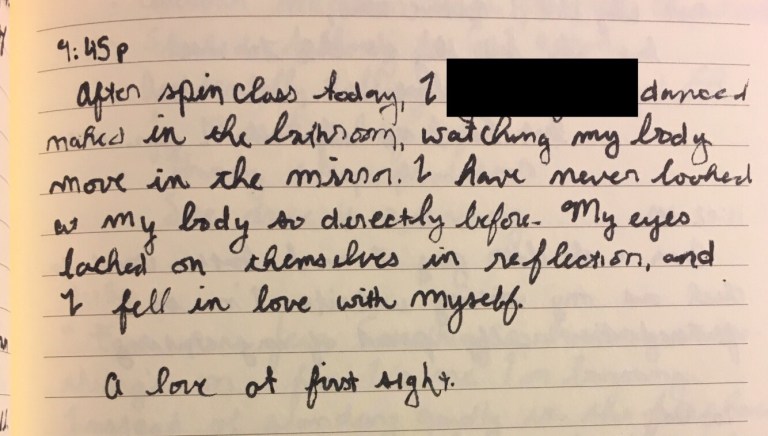 9:45p
After spin class today, I danced
naked in the bathroom, watching my body
move in the mirror. I have never looked
at my body so directly before. My eyes
locked on themselves in reflection, and
I fell in love with myself.
A love at first sight.